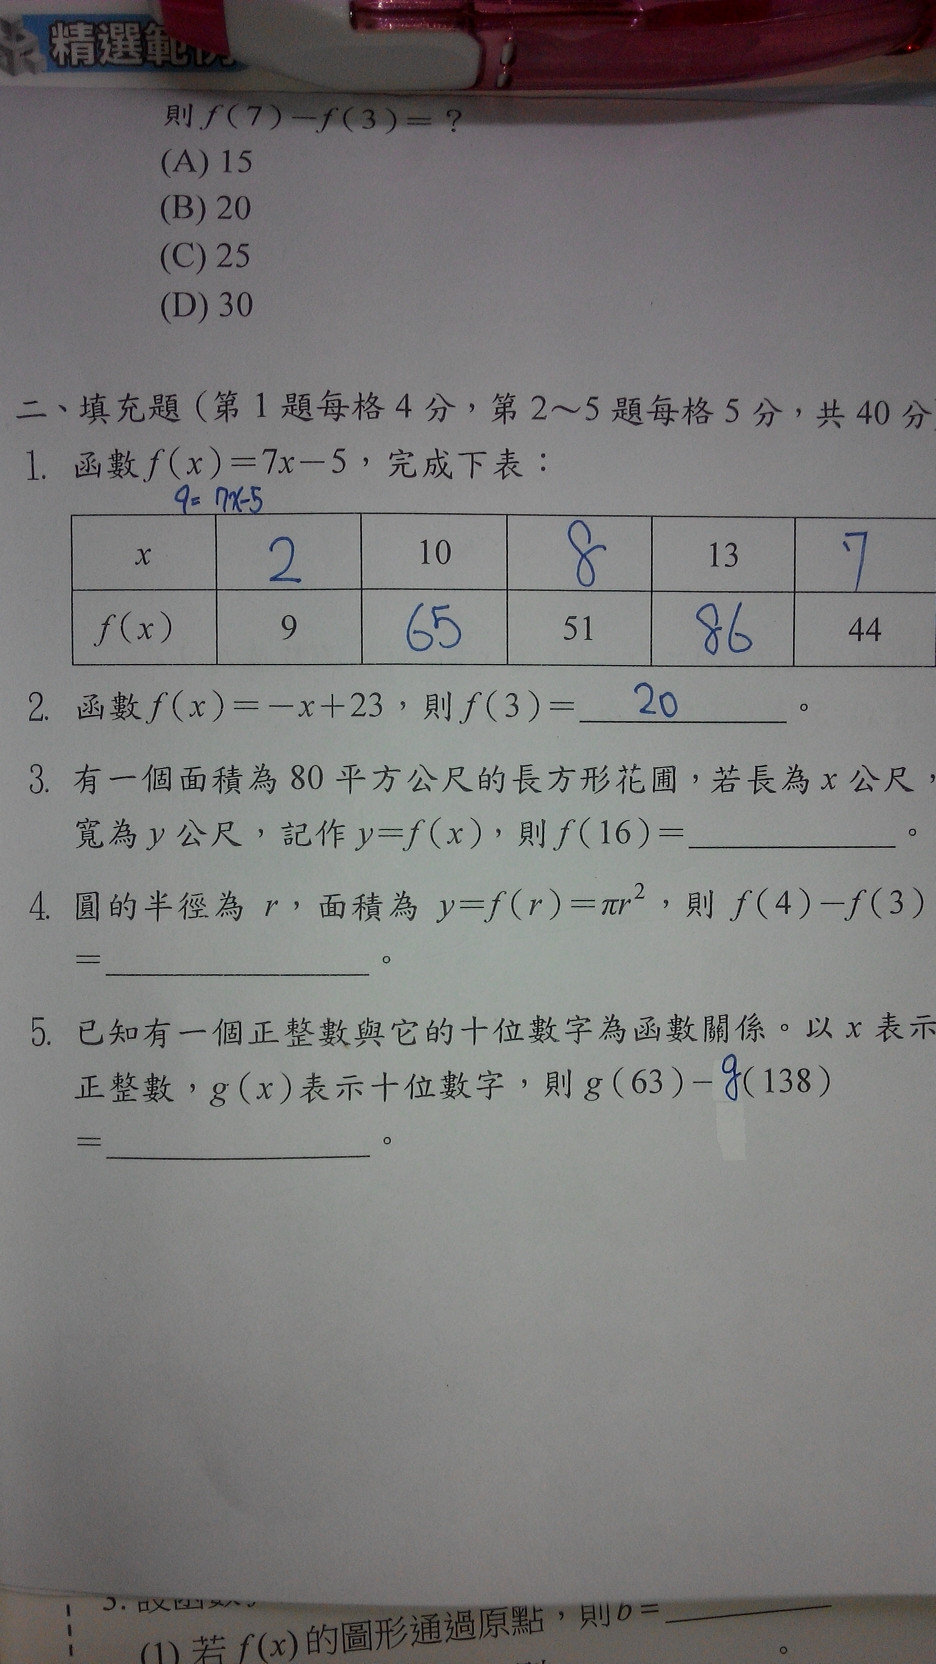 精選範例
則 f(7)-f(3)=？
(A) 15
(B) 20
(C) 25
(D) 30
二、填充題（第 1 題每格 4 分，第 2～5 題每格 5 分，共 40 分
1. 函數 f(x)=7x-5，完成下表：
9= 7x-5
x 2 10 8 13 7
f(x) 9 65 51 86 44
2. 函數 f(x)=-x+23，則 f(3)= 20 。
3. 有一個面積為 80 平方公尺的長方形花圃，若長為 x 公尺，
寬為 y 公尺，記作 y=f(x)，則 f(16)=＿＿＿＿＿。
4. 圓的半徑為 r，面積為 y=f(r)=πr²，則 f(4)-f(3)
=＿＿＿＿＿。
5. 已知有一個正整數與它的十位數字為函數關係。以 x 表示
正整數，g(x)表示十位數字，則 g(63)-g(138)
=＿＿＿＿＿。
(1) 若 f(x)的圖形通過原點，則 b=＿＿＿＿＿
。